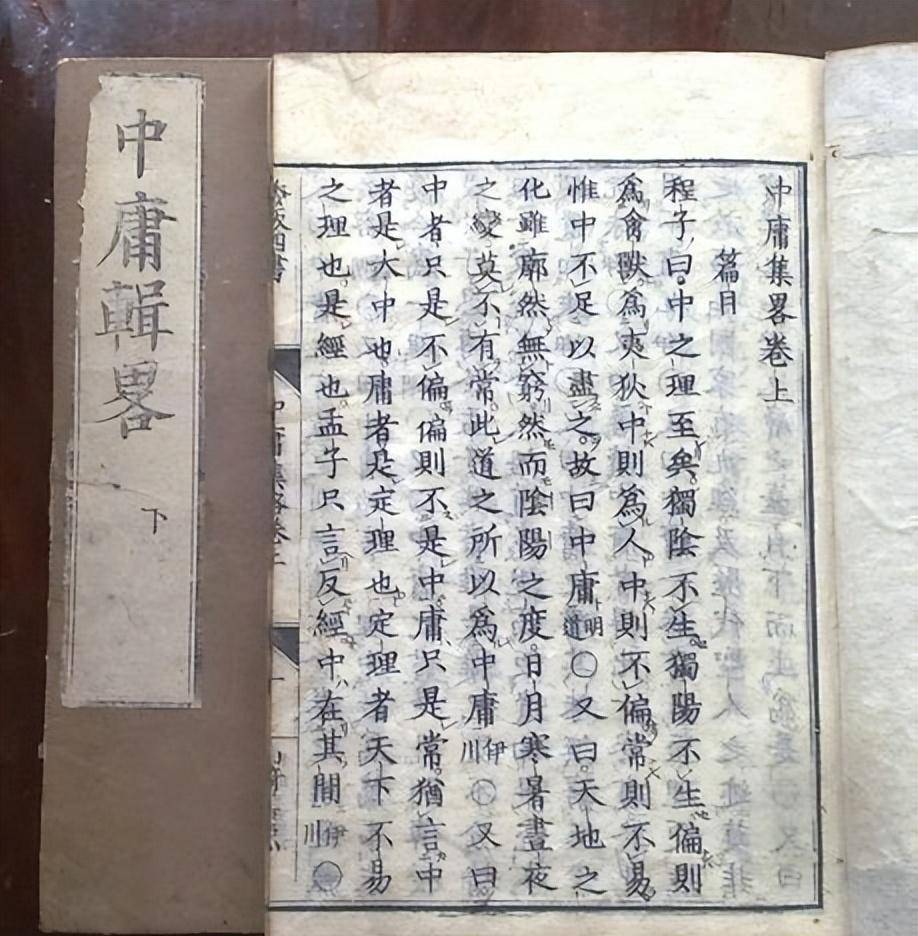 中庸輯畧
下
中庸集畧卷上
篇目
程子曰中之理至矣獨陰不生獨陽不生偏則
爲禽獸爲夷狄中則爲人中則不偏常則不易
惟中不足以盡之故曰中庸明道○又曰天地之
化雖廓然無窮然而陰陽之度日月寒暑晝夜
之變莫不有常此道之所以爲中庸伊川○又曰
中者只是不偏偏則不是中庸只是常猶言中
者是大中也庸者是定理也定理者天下不易
之理也是經也孟子只言反經中在其間伊川○